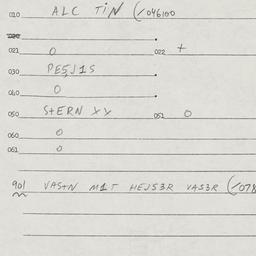 010 ALC TiN (/046100
021 0 022 +
030 PE5J1S
040 0
050 StERN XY 051 0
060 0
061 0
901 VAStN M1T HEJS3R VAS3R (/078